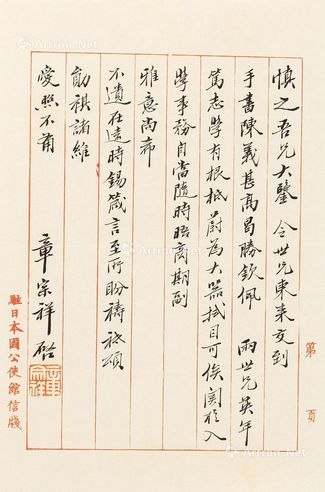 慎之吾兄大鑒 令世兄東来交到
手書陳義甚高曷勝欽佩 兩世兄英年
篤志學有根柢蔚為大器拭目可俟関於入
學事務自當隨時晤商期副
雅意尚希
不遺在遠時錫箴言至所盼禱祗頌
勛祺諸維
愛照不宣
章宗祥啓
第 頁
駐日本國公使館信牋